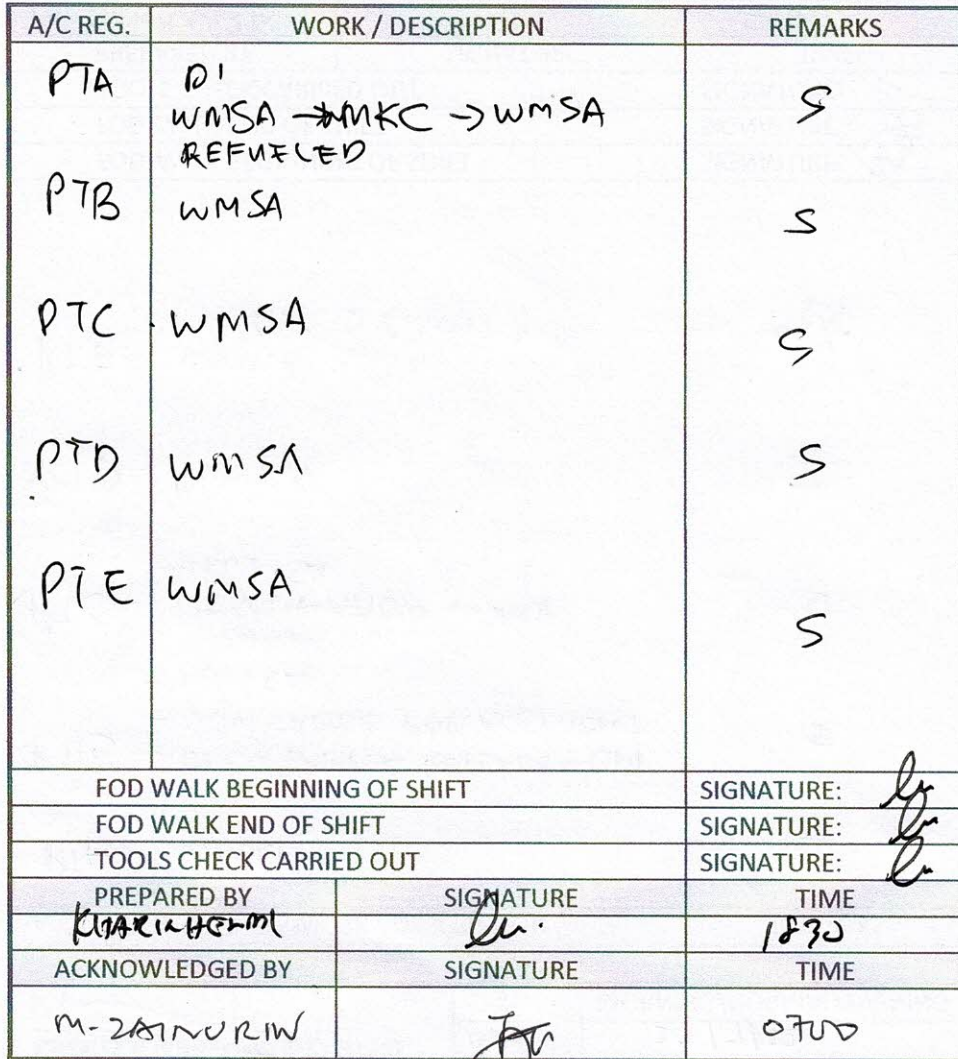 A/C REG. WORK / DESCRIPTION REMARKS
PTA DI S
WMSA → MKC → WMSA
REFUELED
PTB WMSA S
PTC WMSA S
PTD WMSA S
PTE WMSA S
FOD WALK BEGINNING OF SHIFT SIGNATURE:
FOD WALK END OF SHIFT SIGNATURE:
TOOLS CHECK CARRIED OUT SIGNATURE:
PREPARED BY SIGNATURE TIME
1830
ACKNOWLEDGED BY SIGNATURE TIME
M-ZAINURIN 0700